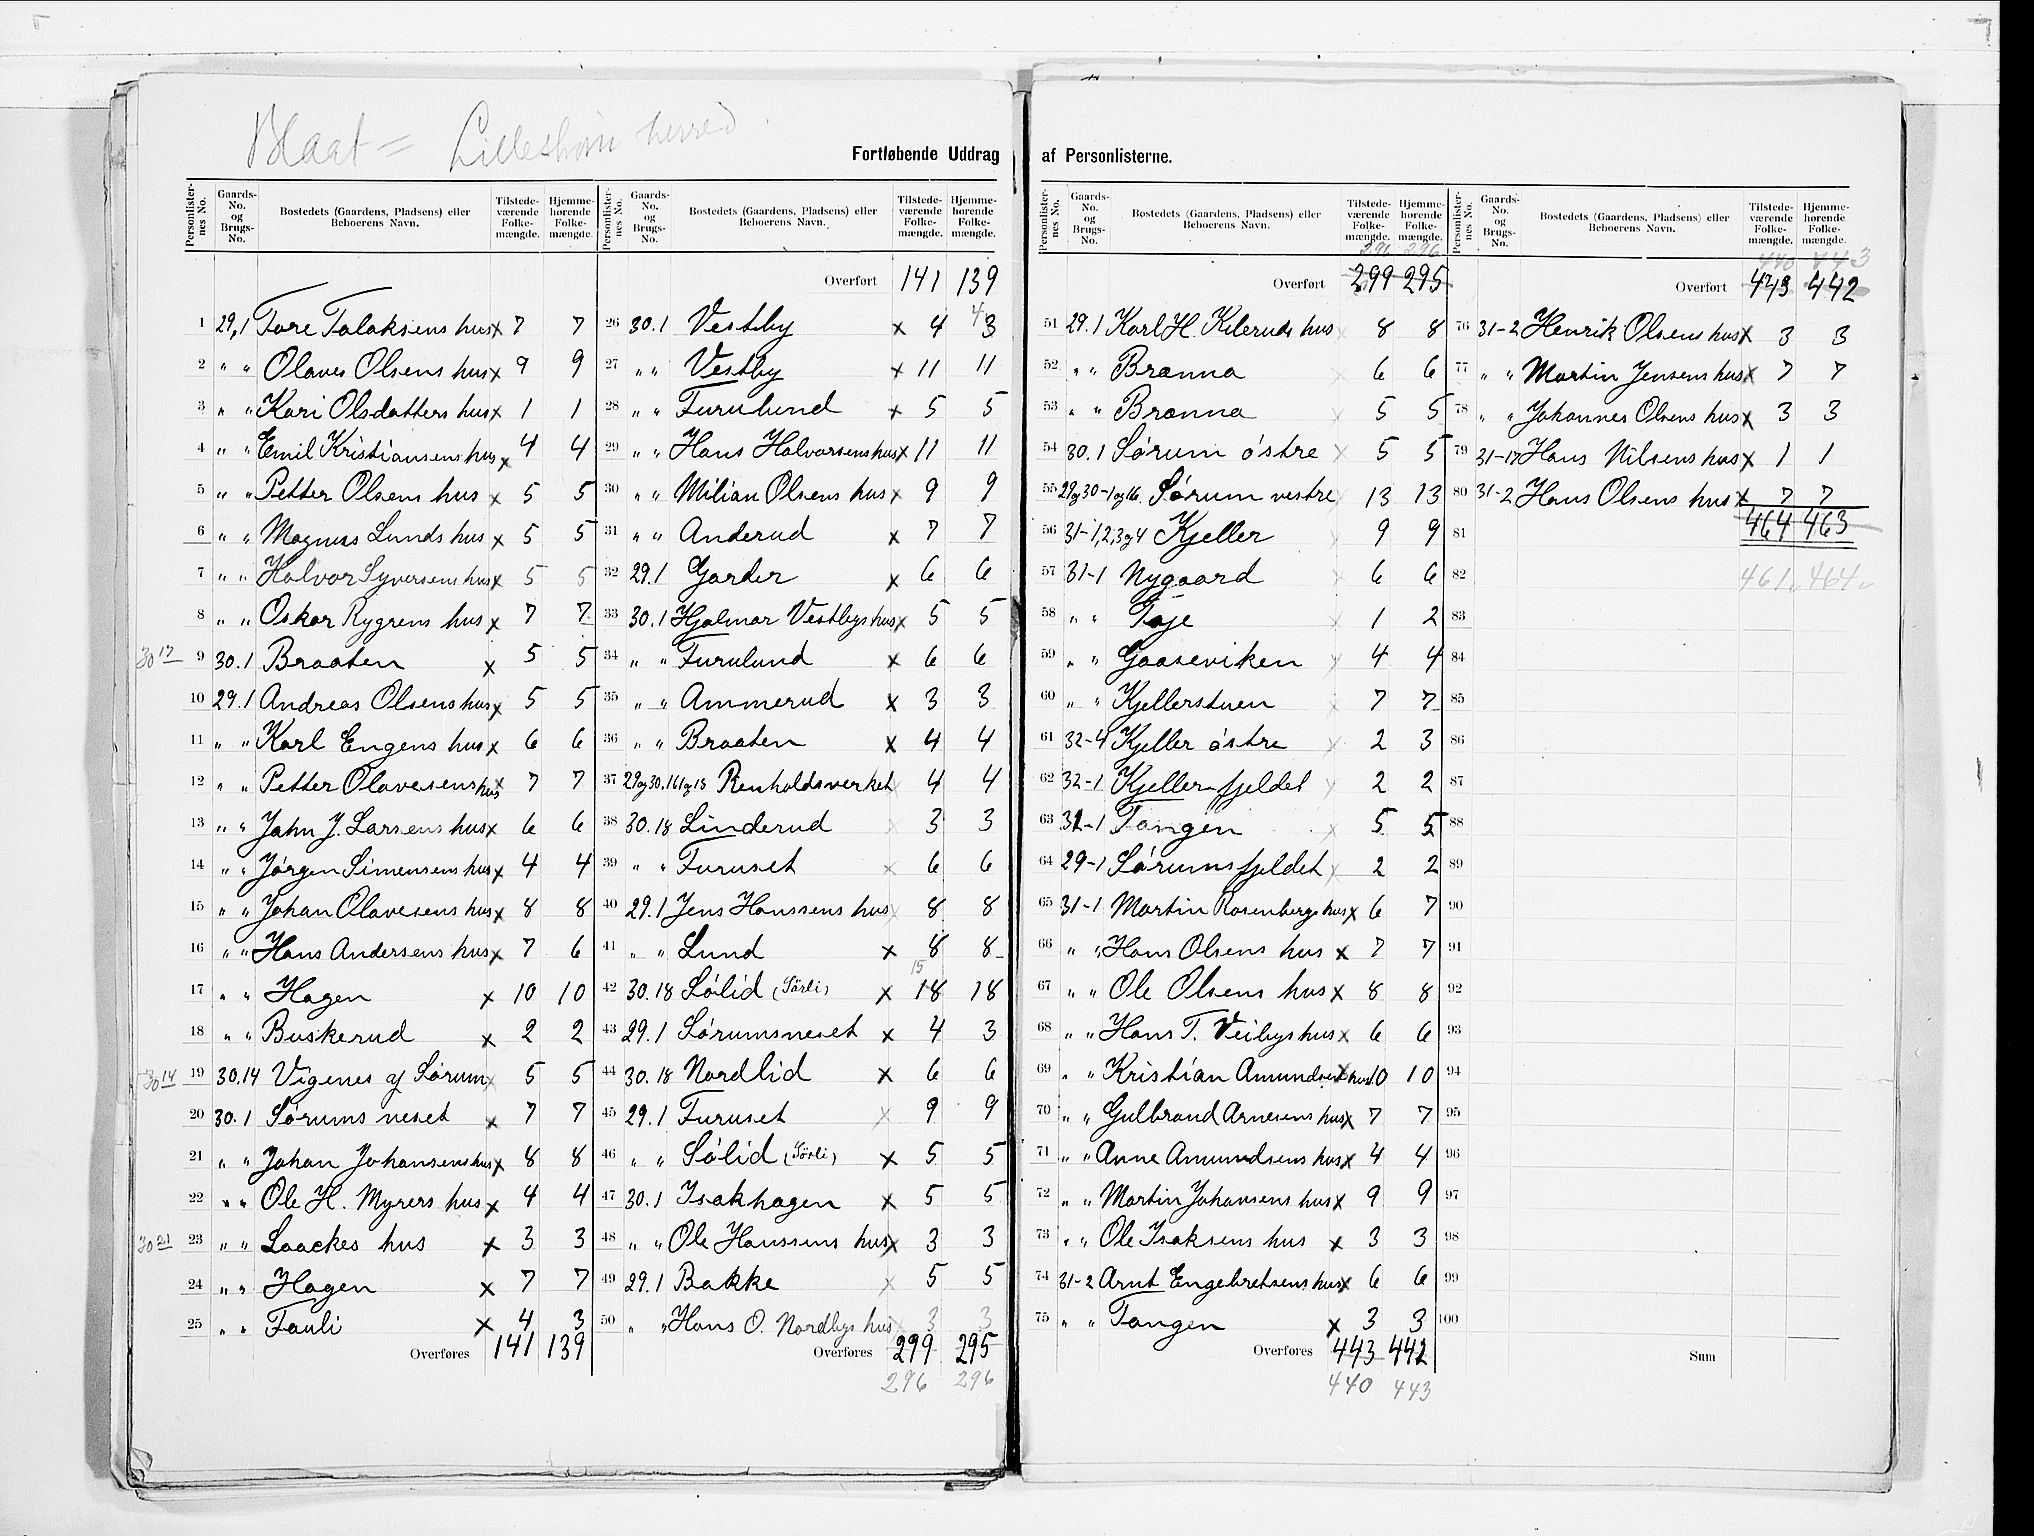 Blaat = Lillestrøm herred
Fortløbende Uddrag af Personlisterne.
Personlister-nes No. Gaards-No. og Brugs-No. Bostedets (Gaardens, Pladsens) eller Beboerens Navn. Tilstede-værende Folke-mængde. Hjemme-hørende Folke-mængde.
1 29,1 Tore Tolaksens hus x 7 7
2 " " Olaves Olsens hus x 9 9
3 " " Kari Olsdatters hus x 1 1
4 " " Emil Kristiansens hus x 4 4
5 " " Petter Olsens hus x 5 5
6 " " Magnus Lunds hus x 5 5
7 " " Halvor Syversens hus x 5 5
8 " " Oskar Rygrens hus x 7 7
30 17 9 30.1 Braaten x 5 5
10 29.1 Andreas Olsens hus x 5 5
11 " " Karl Engens hus x 6 6
12 " " Petter Olavesens hus x 7 7
13 " " John J. Larsens hus x 6 6
14 " " Jørgen Simensens hus x 4 4
15 " " Johan Olavesens hus x 8 8
16 " " Hans Andersens hus x 7 6
17 " " Hagen x 10 10
18 " " Buskerud x 2 2
30 14 19 30.14 Vigenes af Sørum x 5 5
20 30.1 Sørums neset x 7 7
21 " " Johan Johansens hus x 8 8
22 " " Ole H. Myrers hus x 4 4
30 21 23 " " Laackes hus x 3 3
24 " " Hagen x 7 7
25 " " Fauli x 4 3
Overføres 141 139
Personlister-nes No. Gaards-No. og Brugs-No. Bostedets (Gaardens, Pladsens) eller Beboerens Navn. Tilstede-værende Folke-mængde. Hjemme-hørende Folke-mængde.
Overført 141 139
26 30.1 Vestby x 4 4 3
27 " " Vestby x 11 11
28 " " Furulund x 5 5
29 " " Hans Halvorsens hus x 11 11
30 " " Milian Olsens hus x 9 9
31 " " Anderud x 7 7
32 29.1 Garder x 6 6
33 30.1 Hjalmar Vestbys hus x 5 5
34 " " Furulund x 6 6
35 " " Ammerud x 3 3
36 " " Braaten x 4 4
37 29og30.16og13 Renholdsverket x 4 4
38 30.18 Linderud x 3 3
39 " " Furuset x 6 6
40 29.1 Jens Hanssens hus x 8 8
41 " " Lund x 8 8
15
42 30.18 Sølid (Sörli) x 18 18
43 29.1 Sørumsneset x 4 3
44 30.18 Nordlid x 6 6
45 29.1 Furuset x 9 9
46 " " Sølid (Sörli) x 5 5
47 30.1 Isakhagen x 5 5
48 " " Ole Hanssens hus x 3 3
49 29.1 Bakke x 5 5
50 " " Hans O. Nordbys hus x 3 3
Overføres 299 295
296 296
Personlister-nes No. Gaards-No. og Brugs-No. Bostedets (Gaardens, Pladsens) eller Beboerens Navn. Tilstede-værende Folke-mængde. Hjemme-hørende Folke-mængde.
296 296
Overført 299 295
51 29.1 Karl H. Kileruds hus x 8 8
52 " " Brænna x 6 6
53 " " Brænna x 5 5
54 30.1 Sørum østre x 5 5
55 29og30-1og16 Sørum vestre x 13 13
56 31-1,2,3og4 Kjeller x 9 9
57 31-1 Nygaard x 6 6
58 " " Taje x 1 2
59 " " Gaaseviken x 4 4
60 " " Kjellerstuen x 7 7
61 32-4 Kjeller østre x 2 3
62 32-1 Kjellerfjeldet x 2 2
63 31-1 Tangen x 5 5
64 29-1 Sørumsfjeldet x 2 2
65 31-1 Martin Rosenbergs hus x 6 7
66 " " Hans Olsens hus x 7 7
67 " " Ole Olsens hus x 8 8
68 " " Hans T. Veibys hus x 6 6
69 " " Kristian Amundsens hus x 10 10
70 " " Gulbrand Arnesens hus x 7 7
71 " " Anne Amundsens hus x 4 4
72 " " Martin Johansens hus x 9 9
73 " " Ole Isaksens hus x 3 3
74 31-2 Arnt Engebretsens hus x 6 6
75 " " Tangen x 3 3
Overføres 443 442
440 443
Personlister-nes No. Gaards-No. og Brugs-No. Bostedets (Gaardens, Pladsens) eller Beboerens Navn. Tilstede-værende Folke-mængde. Hjemme-hørende Folke-mængde.
440 443
Overført 443 442
76 31-2 Henrik Olsens hus x 3 3
77 " " Martin Jensens hus x 7 7
78 " " Johannes Olsens hus x 3 3
79 31-17 Hans Nilsens hus x 1 1
80 31-2 Hans Olsens hus x 7 7
81 464 463
82 461 464
83
84
85
86
87
88
89
90
91
92
93
94
95
96
97
98
99
100
Sum